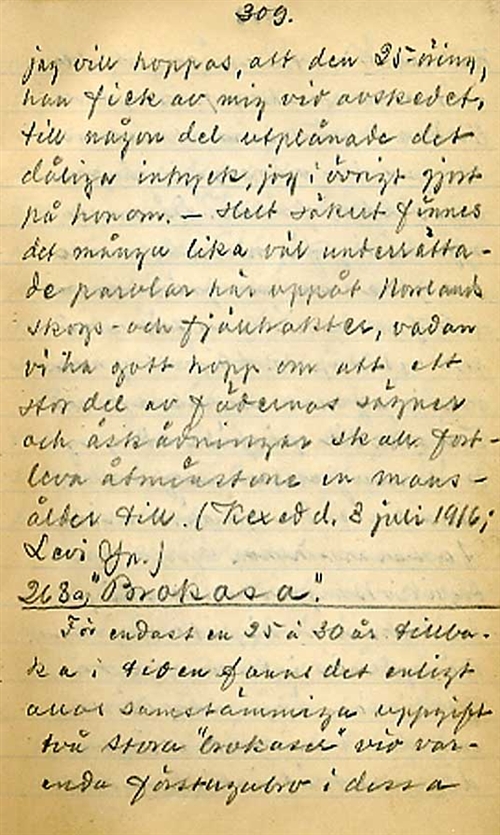 309.
jag vill hoppas, att den 25-öring,
han fick av mig vid avskedet,
till någon del utplånade det
dåliga intryck, jag i övrigt gjort
på honom. — Helt säkert finnes
det många lika väl underrätta-
de parolar här uppåt Norrlands
skogs- och fjälltrakter, vadan
vi ha gott hopp om att ett
stor del av fädernas sägner
och åskådningar skall fort-
leva åtminstone en mans-
ålder till. (Kexed d. 3 juli 1916;
Levi Jn.)
263a, "Brokasa".
För endast en 25 à 30 år tillba-
ka i tiden fanns det enligt
allas samstämmiga uppgift
två stora "brokaser" vid var-
enda förstugubro i dessa